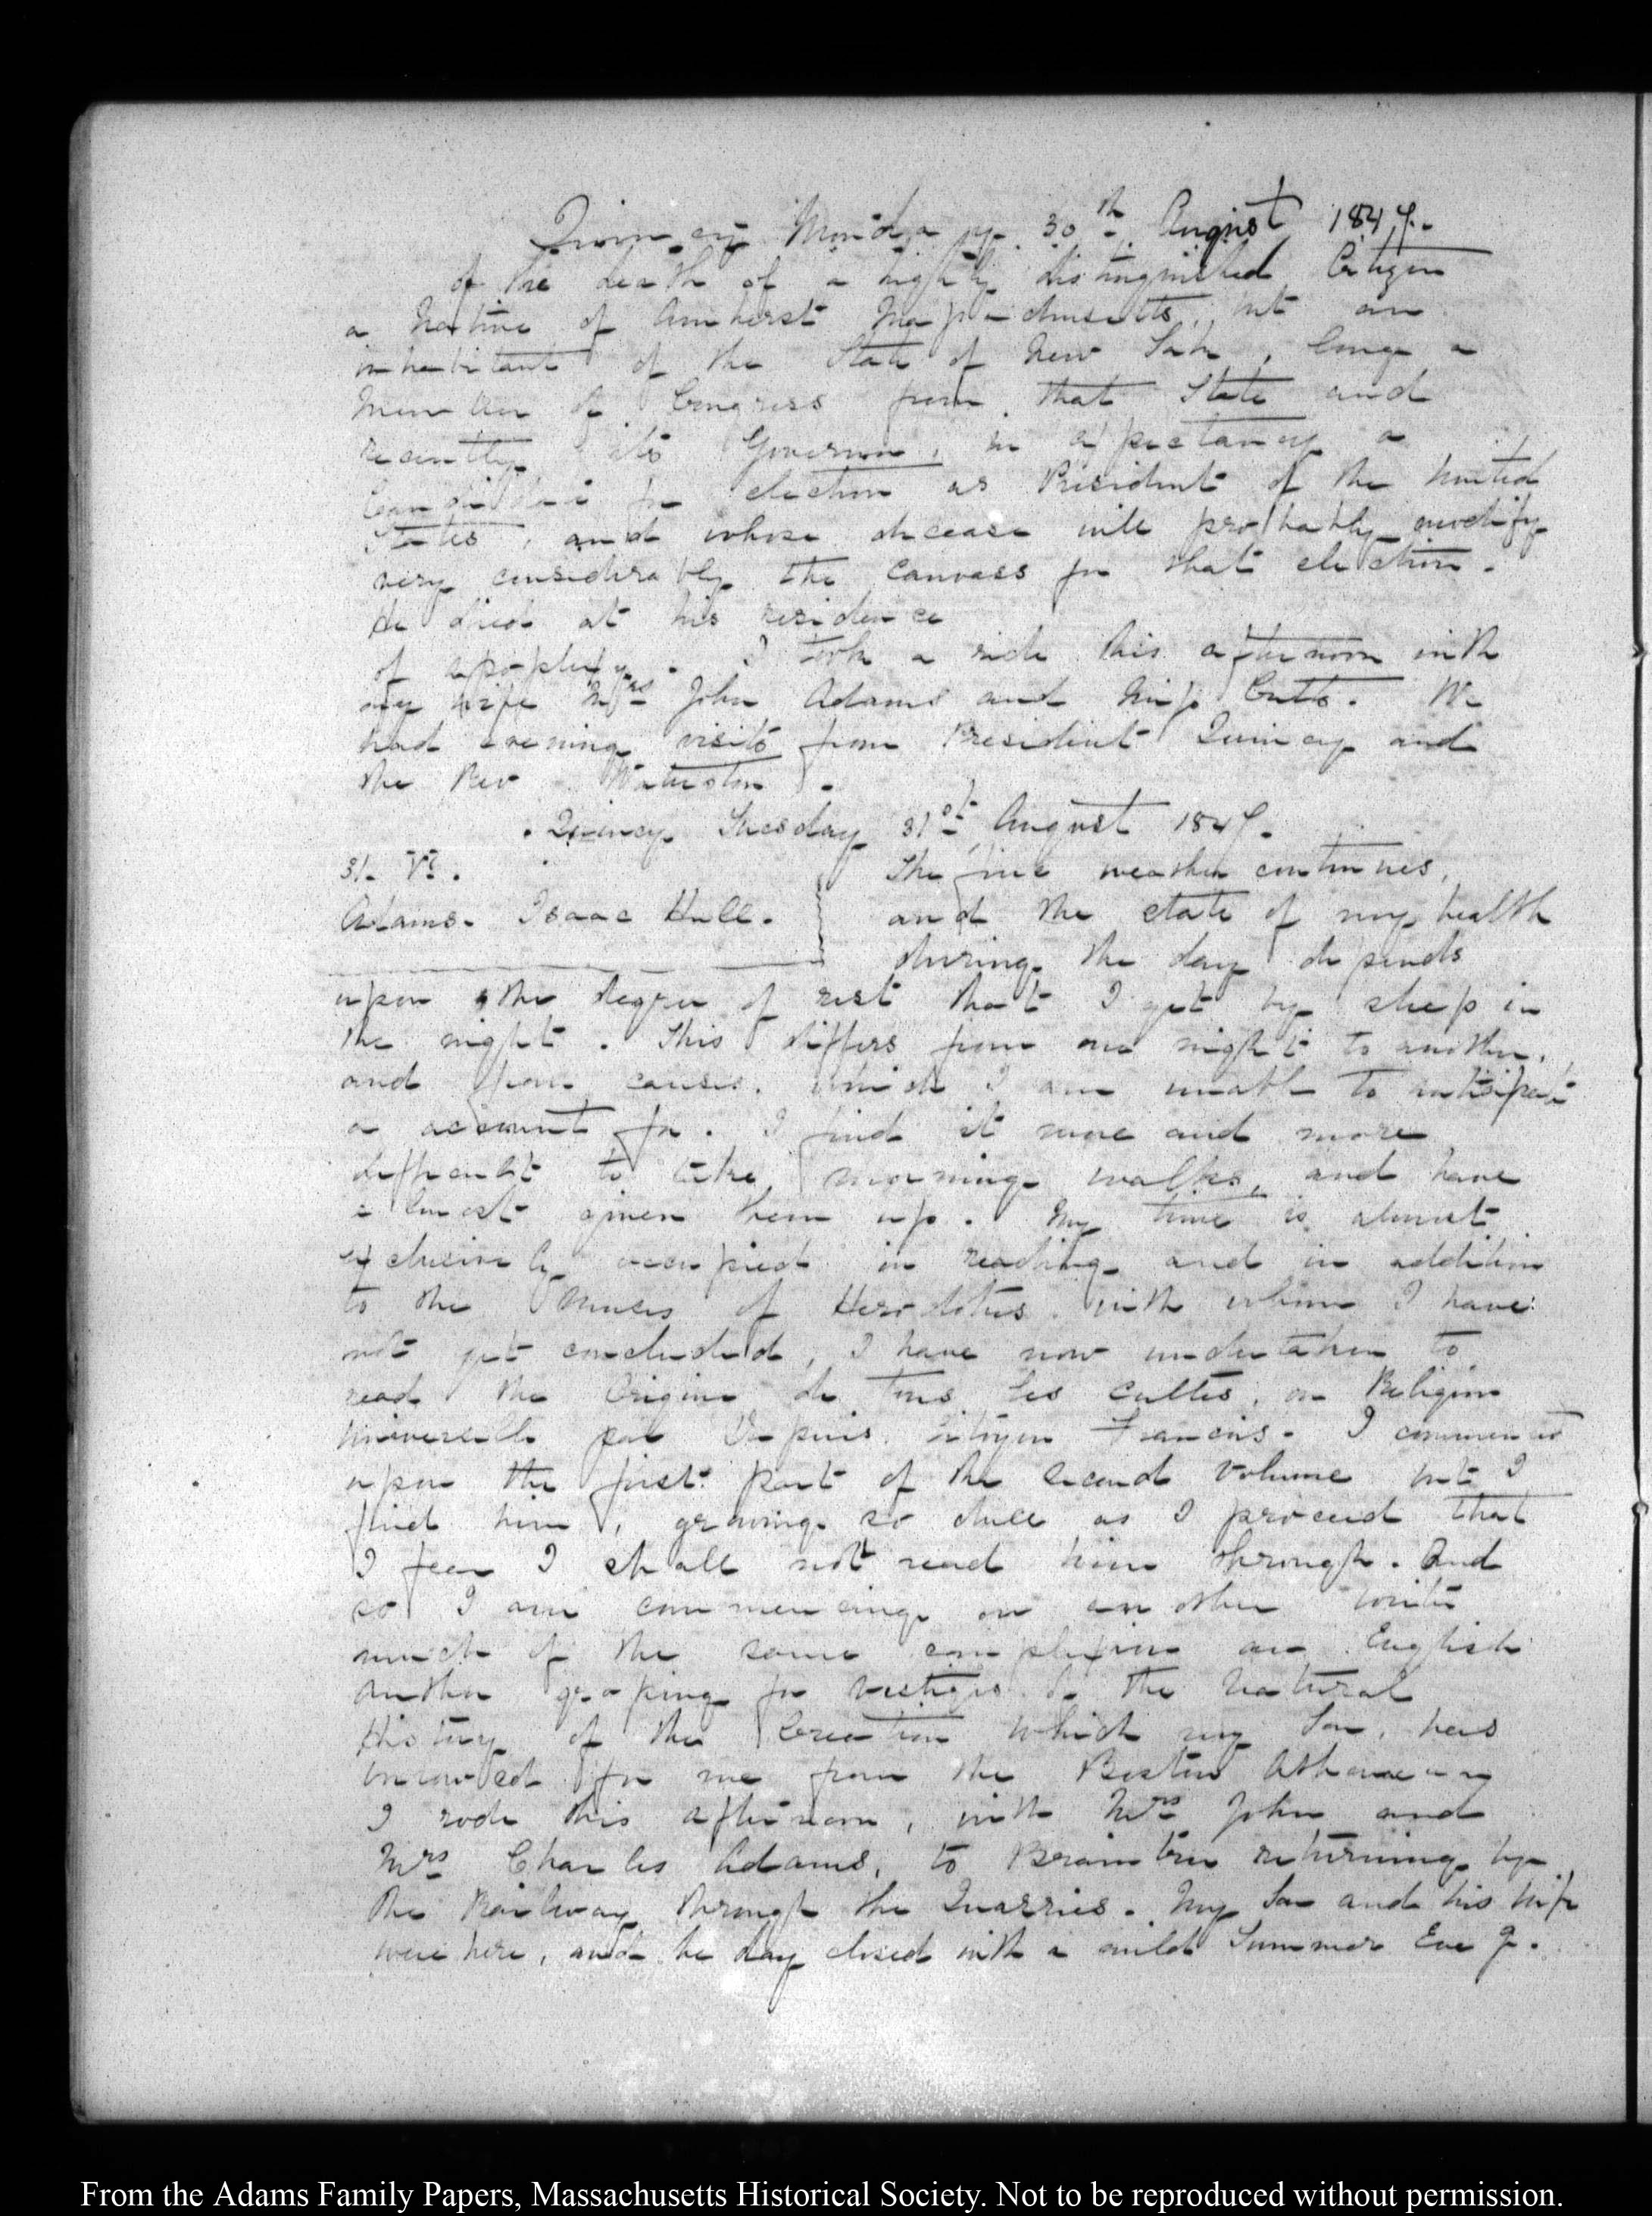 Quincy Monday 30th August 1847.
of the death of a highly distinguished Citizen
a Native of Amherst Massachusetts, but an
inhabitant of the State of New York, long a
Member of Congress from that State and
recently its Governor, in expectancy a
Candidate for election as President of the United
States, and whose decease will probably modify
very considerably the canvass for that election.
He died at his residence
of apoplexy. I took a ride this afternoon with
my wife Mrs John Adams and Miss Cutts. We
had evening visits from President Quincy and
the Rev Waterston.
Quincy Tuesday 31st August 1847.
31. V.
Adams. Isaac Hull.
The fine weather continues,
and the state of my health
during the day depends
upon the degree of rest that I get by sleep in
the night. This differs from one night to another,
and from causes which I am unable to anticipate
or account for. I find it more and more
difficult to take morning walks, and have
almost given them up. My time is almost
exclusively occupied in reading and in addition
to the Muses of Herodotus with whom I have
not yet concluded, I have now undertaken to
read the Origine de tous les cultes, ou Religion
universelle par Dupuis, Citoyen Francois. I commenced
upon the first part of the second volume but I
find him, growing so dull as I proceed that
I fear I shall not read him through. And
so I am commencing on another writer
much of the same complexion an English
author groping for vestiges of the Natural
History of the Creation which my Son, has
borrowed for me from the Boston Athenaeum
I rode this afternoon, with Mrs John and
Mrs Charles Adams, to Braintree returning by
the Railway through the Quarries. My Son and his wife
were here, and he day closed with a mild Summer Eveg.
From the Adams Family Papers, Massachusetts Historical Society. Not to be reproduced without permission.